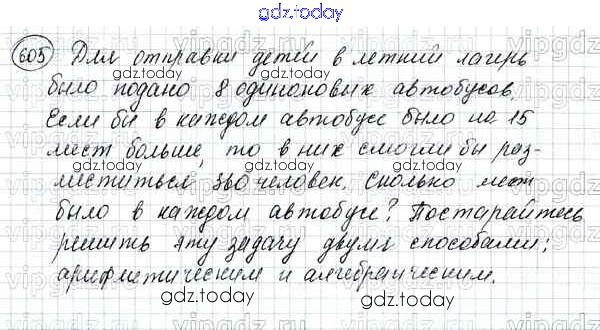 gdz.today
605 Для отправки детей в летний лагерь
gdz.today gdz.today
было подано 8 одинаковых автобусов.
Если бы в каждом автобусе было на 15
gdz.today gdz.today
мест больше, то в них смогли бы раз-
меститься 360 человек. Сколько мест
gdz.today gdz.today
было в каждом автобусе? Постарайтесь
решить эту задачу двумя способами:
gdz.today gdz.today
арифметическим и алгебраическим.
gdz.today